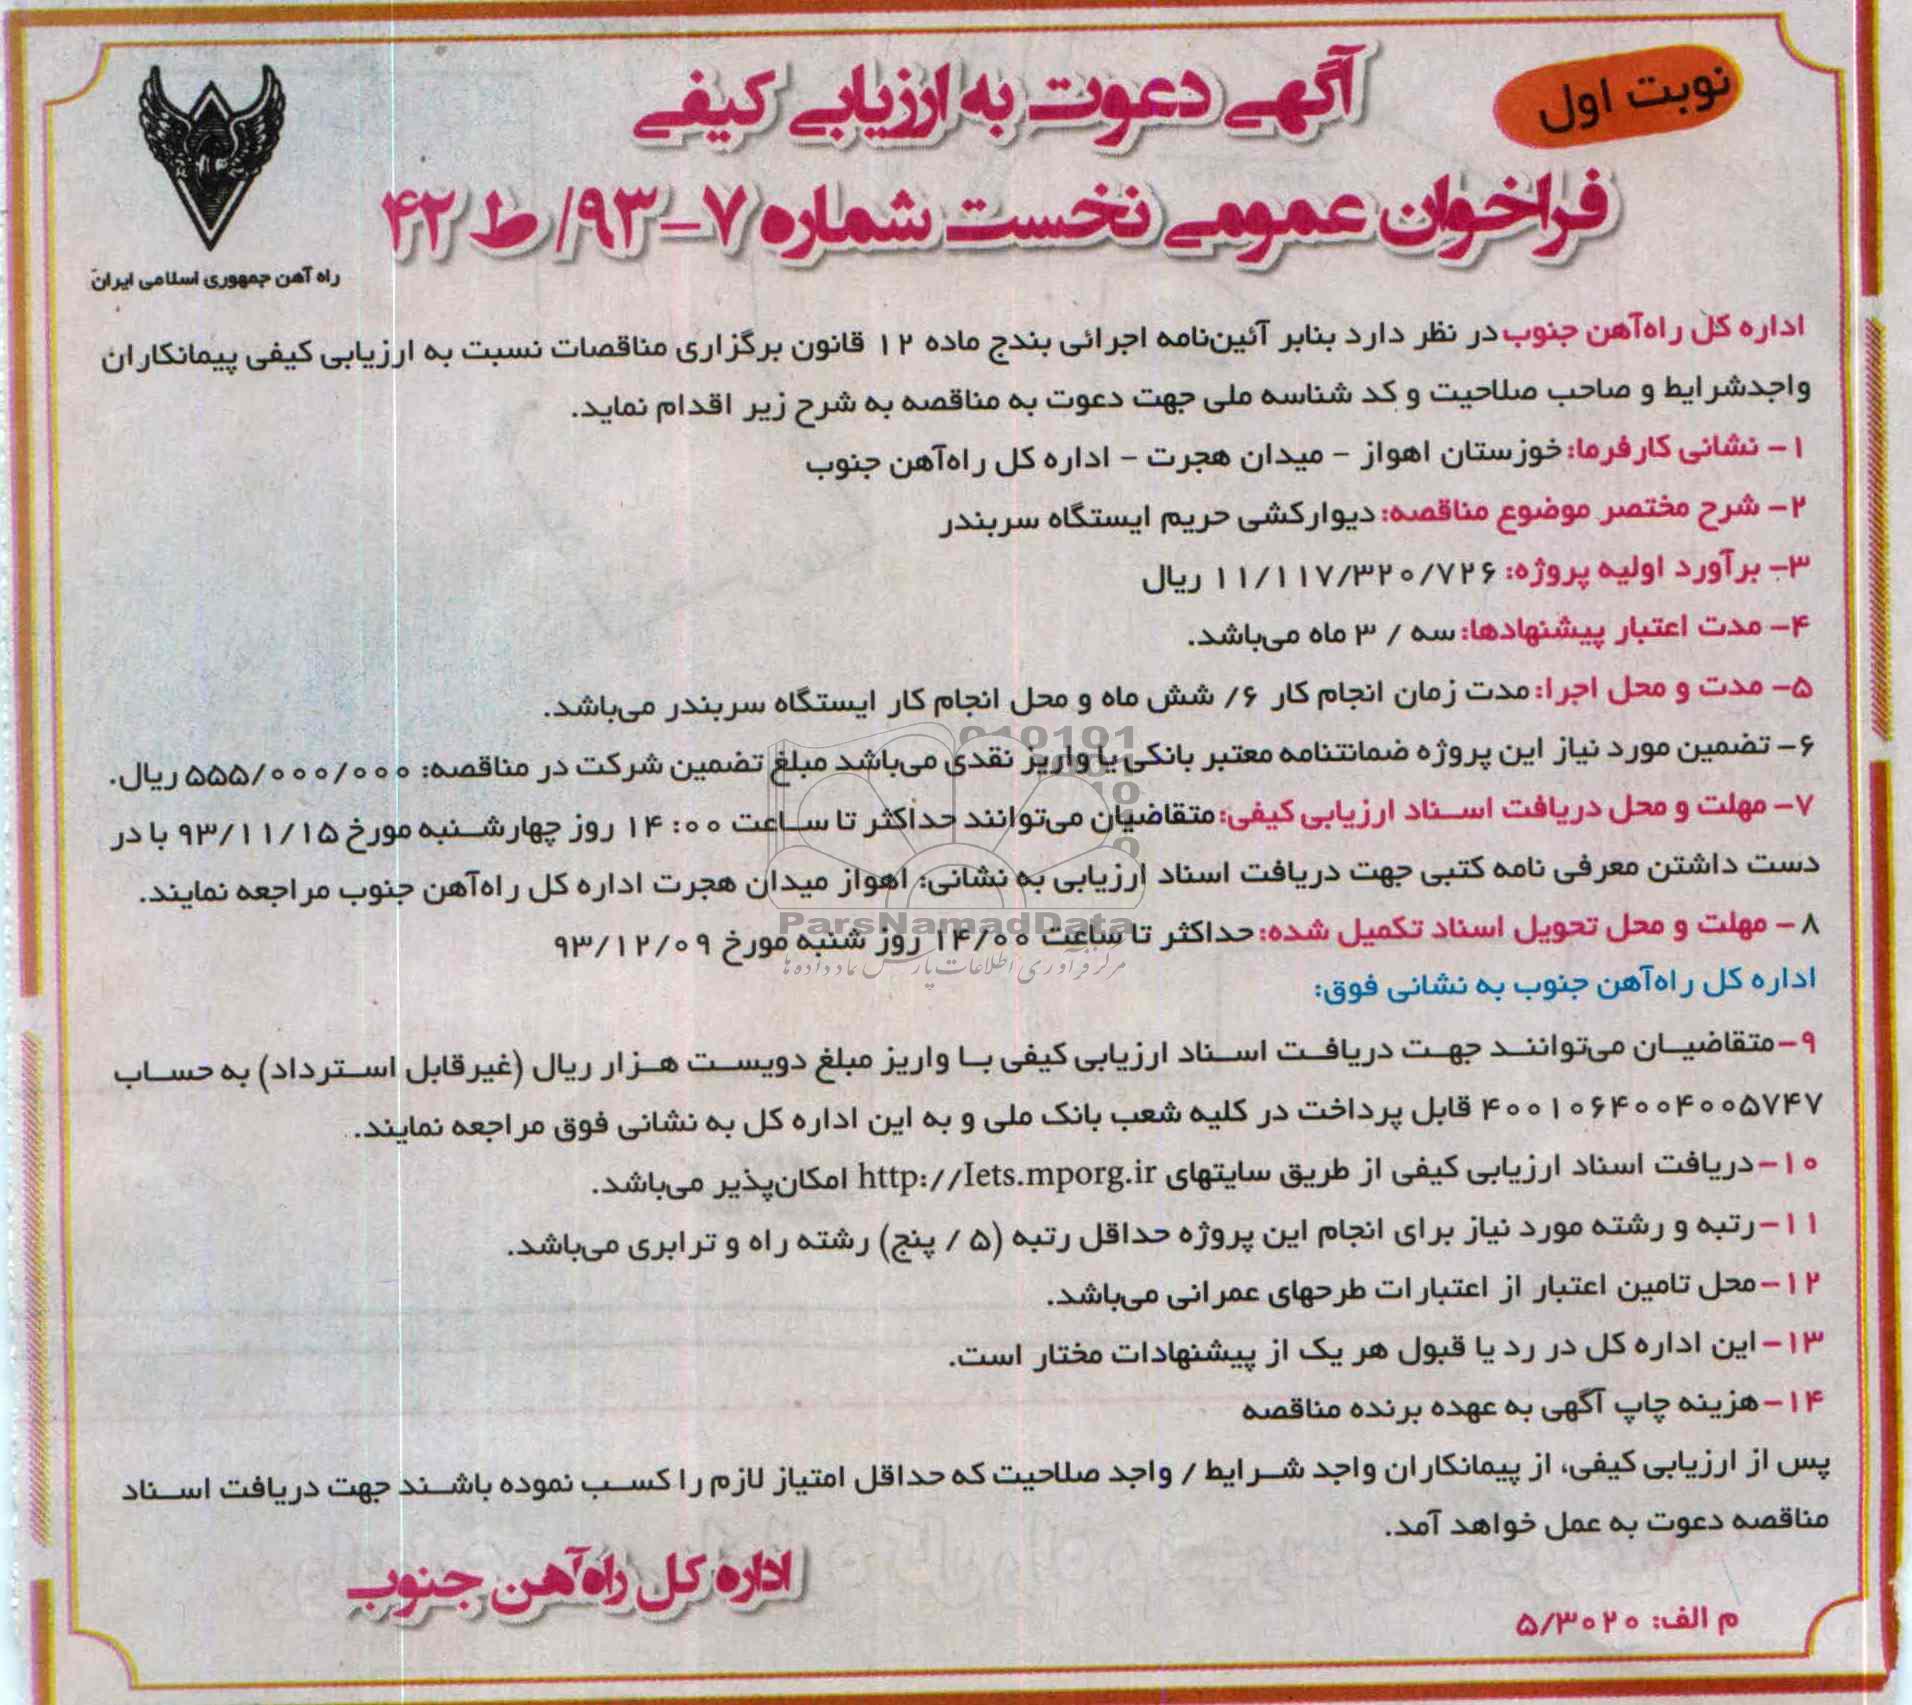 نوبت اول
آگهی دعوت به ارزیابی کیفی
فراخوان عمومی نخست شماره ۷-۹۳/ ط ۴۲
راه آهن جمهوری اسلامی ایران
اداره کل راه‌آهن جنوب در نظر دارد بنابر آئین‌نامه اجرائی بندج ماده ۱۲ قانون برگزاری مناقصات نسبت به ارزیابی کیفی پیمانکاران
واجدشرایط و صاحب صلاحیت و کد شناسه ملی جهت دعوت به مناقصه به شرح زیر اقدام نماید.
۱- نشانی کارفرما: خوزستان اهواز - میدان هجرت - اداره کل راه‌آهن جنوب
۲- شرح مختصر موضوع مناقصه: دیوارکشی حریم ایستگاه سربندر
۳- برآورد اولیه پروژه: ۱۱/۱۱۷/۳۲۰/۷۲۶ ریال
۴- مدت اعتبار پیشنهادها: سه / ۳ ماه می‌باشد.
۵- مدت و محل اجرا: مدت زمان انجام کار ۶/ شش ماه و محل انجام کار ایستگاه سربندر می‌باشد.
۶- تضمین مورد نیاز این پروژه ضمانتنامه معتبر بانکی یا واریز نقدی می‌باشد مبلغ تضمین شرکت در مناقصه: ۵۵۵/۰۰۰/۰۰۰ ریال.
۷- مهلت و محل دریافت اسناد ارزیابی کیفی: متقاضیان می‌توانند حداکثر تا ساعت ۰۰: ۱۴ روز چهارشنبه مورخ ۹۳/۱۱/۱۵ با در
دست داشتن معرفی نامه کتبی جهت دریافت اسناد ارزیابی به نشانی: اهواز میدان هجرت اداره کل راه‌آهن جنوب مراجعه نمایند.
۸- مهلت و محل تحویل اسناد تکمیل شده: حداکثر تا ساعت ۱۴/۰۰ روز شنبه مورخ ۹۳/۱۲/۰۹
ParsNamadData
مرکز فرآوری اطلاعات پارس نماد داده ها
اداره کل راه‌آهن جنوب به نشانی فوق:
۹- متقاضیان می‌توانند جهت دریافت اسناد ارزیابی کیفی با واریز مبلغ دویست هزار ریال (غیرقابل استرداد) به حساب
۴۰۰۱۰۶۴۰۰۴۰۰۵۷۴۷ قابل پرداخت در کلیه شعب بانک ملی و به این اداره کل به نشانی فوق مراجعه نمایند.
۱۰- دریافت اسناد ارزیابی کیفی از طریق سایتهای http://Iets.mporg.ir امکان‌پذیر می‌باشد.
۱۱- رتبه و رشته مورد نیاز برای انجام این پروژه حداقل رتبه (۵ / پنج) رشته راه و ترابری می‌باشد.
۱۲- محل تامین اعتبار از اعتبارات طرحهای عمرانی می‌باشد.
۱۳- این اداره کل در رد یا قبول هر یک از پیشنهادات مختار است.
۱۴- هزینه چاپ آگهی به عهده برنده مناقصه
پس از ارزیابی کیفی، از پیمانکاران واجد شرایط / واجد صلاحیت که حداقل امتیاز لازم را کسب نموده باشند جهت دریافت اسناد
مناقصه دعوت به عمل خواهد آمد.
اداره کل راه‌آهن جنوب
م الف: ۵/۳۰۲۰